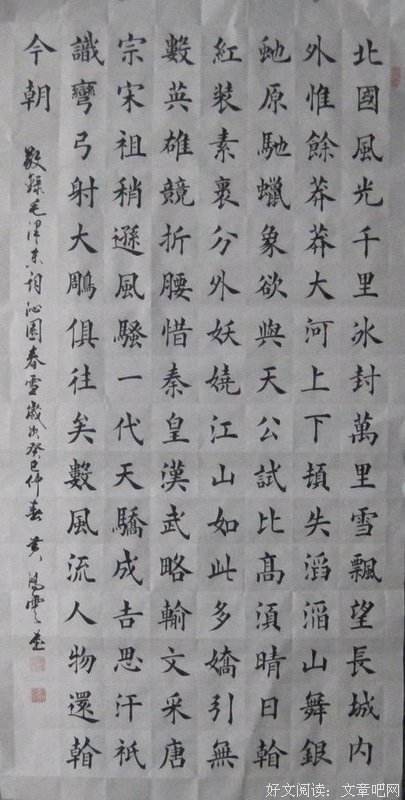 北國風光千里冰封萬里雪飄望長城内
外惟餘莽莽大河上下頓失滔滔山舞銀
虵原馳蠟象欲與天公試比髙須晴日翰
紅裝素裹分外妖嬈江山如此多嬌引無
數英雄競折腰惜秦皇漢武略輸文采唐
宗宋祖稍遜風騷一代天驕成吉思汗衹
識彎弓射大鵰俱往矣數風流人物還翰
今朝
敬錄毛澤東詞沁園春雪歲次癸巳仲春 黄鴻雲書
好文阅读：文章吧网